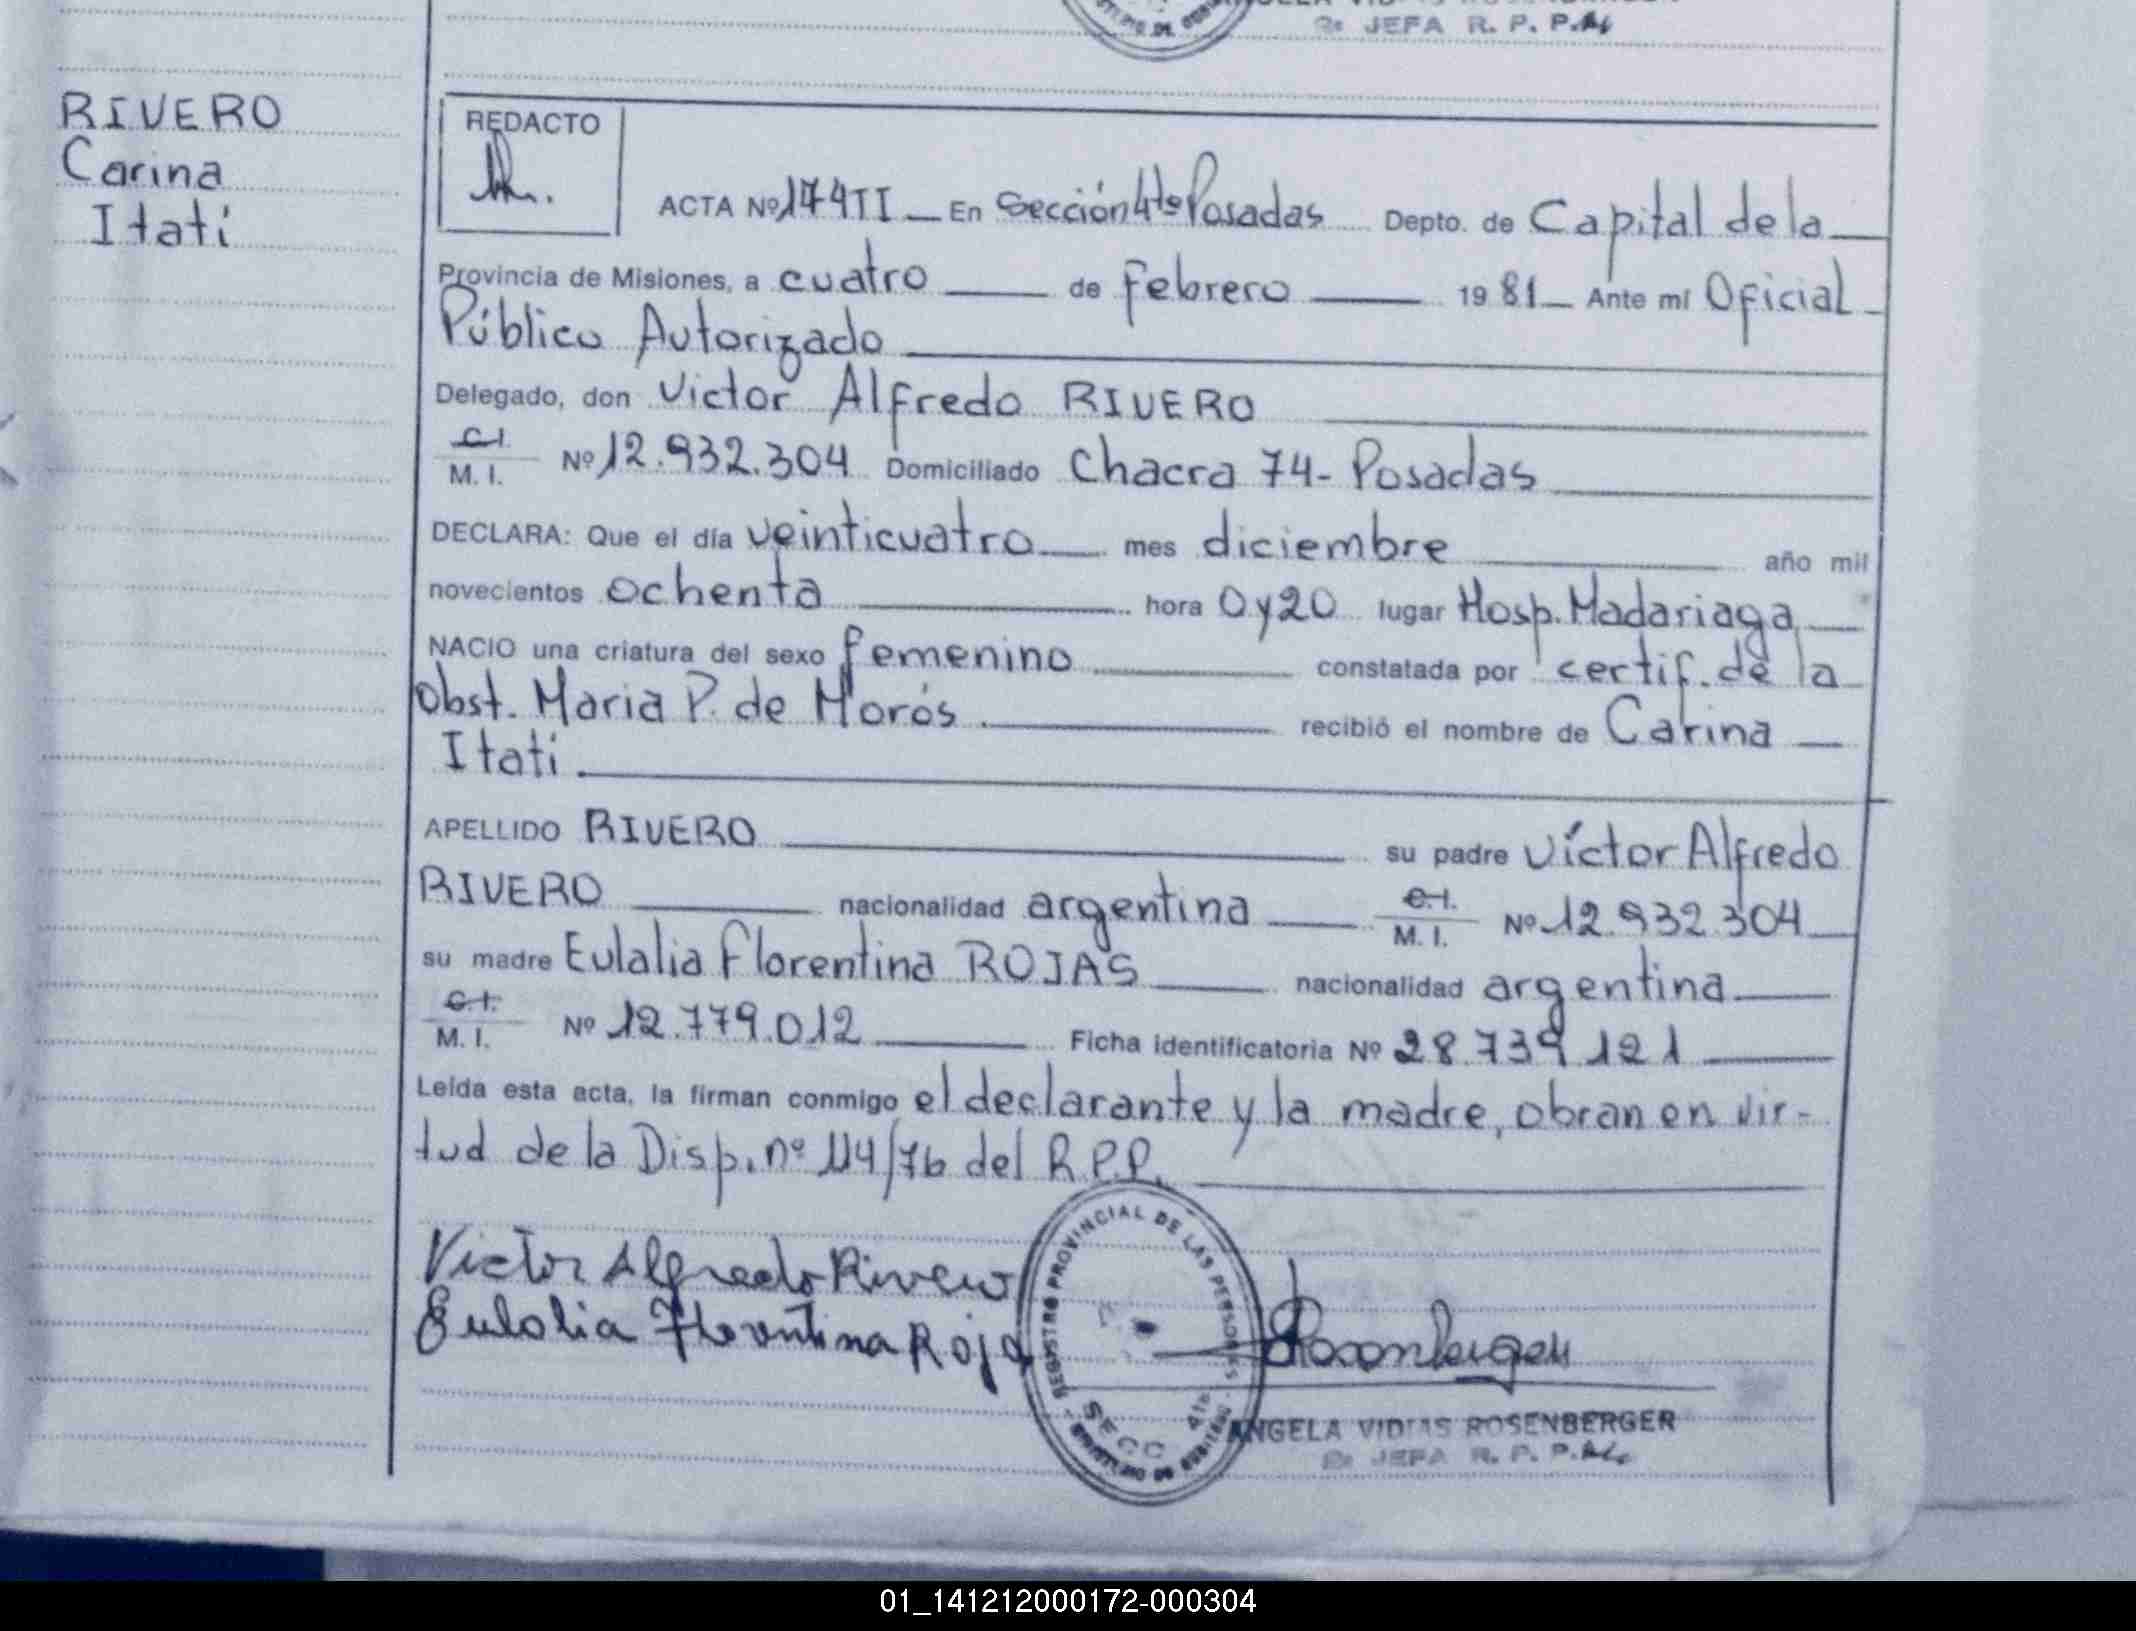 JEFA R. P. P.
RIVERO
Carina
Itatí
REDACTO
ACTA Nº 174 II En Sección 4ta Posadas Depto. de Capital de la
Provincia de Misiones, a cuatro de Febrero 1981 Ante mí Oficial
Público Autorizado
Delegado, don Victor Alfredo RIVERO
C.I.
M. I. Nº 12.932.304 Domiciliado Chacra 74- Posadas
DECLARA: Que el día veinticuatro mes diciembre año mil
novecientos ochenta hora 0 y 20 lugar Hosp. Madariaga
NACIO una criatura del sexo femenino constatada por certif. de la
Obst. Maria P. de Morós recibió el nombre de Carina
Itatí
APELLIDO RIVERO su padre Víctor Alfredo
RIVERO nacionalidad argentina C.I. M. I. Nº 12.932.304
su madre Eulalia Florentina ROJAS nacionalidad argentina
C.I.
M. I. Nº 12.779.012 Ficha identificatoria Nº 28.739.121
Leída esta acta, la firman conmigo el declarante y la madre, obran en vir-
tud de la Disp. nº 114/76 del R.P.P.
Victor Alfredo Rivero
Eulalia Florentina Roja
REGISTRO PROVINCIAL DE LAS PERSONAS
SECC 4ta
Rosenberger
ANGELA VIDIAS ROSENBERGER
JEFA R. P. P.
01_141212000172-000304